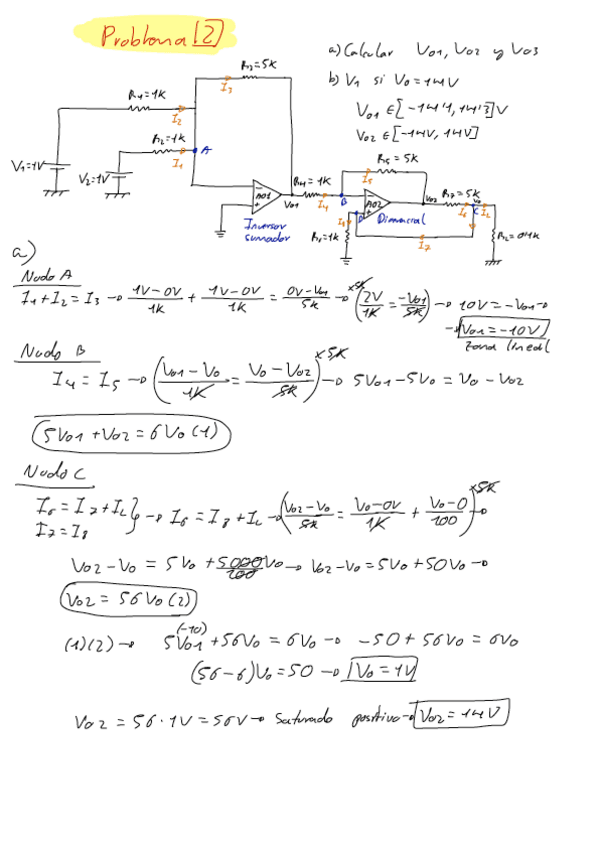 Problema [2]
a) Calcular Vo1, Vo2 y Vo3
b) V1 si Vo = 14V
Vo1 ∈ [-14'4, 14'3] V
Vo2 ∈ [-14V, 14V]
R3=5K
I3
R1=1K
I2
R2=1K
A
I1
V1=1V
V2=1V
AO1
Vo1
Inversor
sumador
R4=1K
I4
B
R5=5K
I5
AO2
Vo2
Diferencial
R7=5K
I6
C
Vo
IL
I7
I8
RL=0'1K
a)
Nudo A
I1 + I2 = I3 → (1V-0V)/1K + (1V-0V)/1K = (0V-Vo1)/5K → (2V/1K = -Vo1/5K) x5K → 10V = -Vo1 →
→ Vo1 = -10V
Zona lineal
Nudo B
I4 = I5 → ((Vo1-Vo)/1K = (Vo-Vo2)/5K) x5K → 5Vo1 - 5Vo = Vo - Vo2
5Vo1 + Vo2 = 6Vo (1)
Nudo C
I6 = I7 + IL
I7 = I8
} → I6 = I8 + IL → ((Vo2-Vo)/5K = (Vo-0V)/1K + (Vo-0)/100) x5K →
Vo2 - Vo = 5Vo + 5000/100 Vo → Vo2 - Vo = 5Vo + 50Vo →
Vo2 = 56Vo (2)
(1)(2) → 5Vo1 (-10) + 56Vo = 6Vo → -50 + 56Vo = 6Vo
(56-6)Vo = 50 → Vo = 1V
Vo2 = 56·1V = 56V → Saturado positivo → Vo2 = 14V